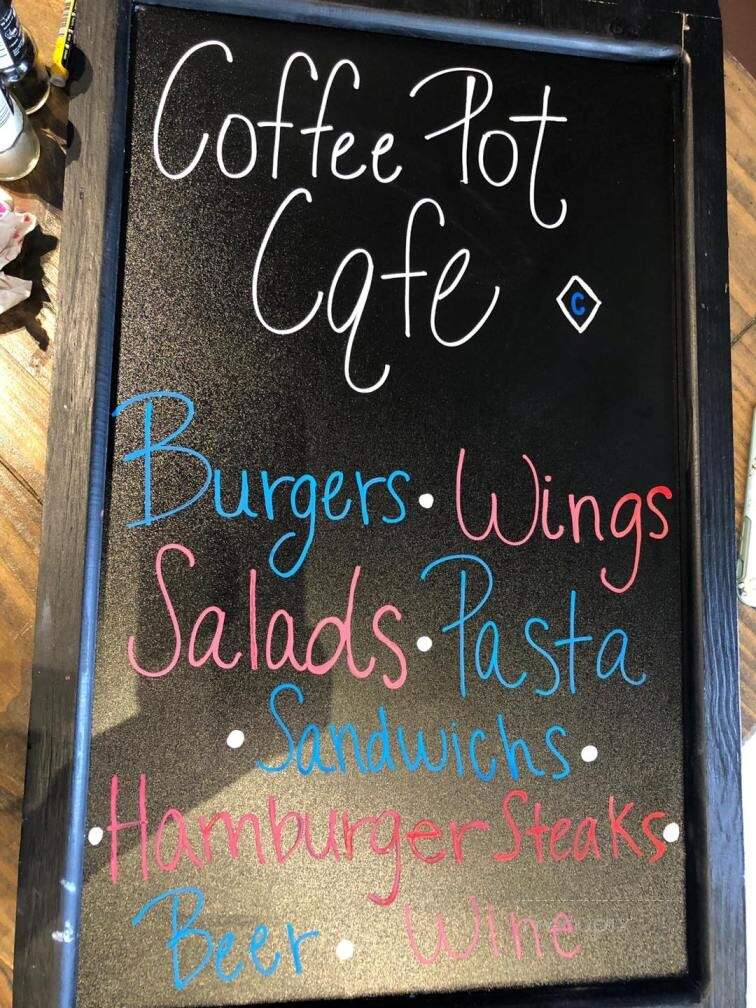 Coffee Pot
Cafe
C
Burgers • Wings
Salads • Pasta
• Sandwichs •
• Hamburger Steaks •
Beer • Wine